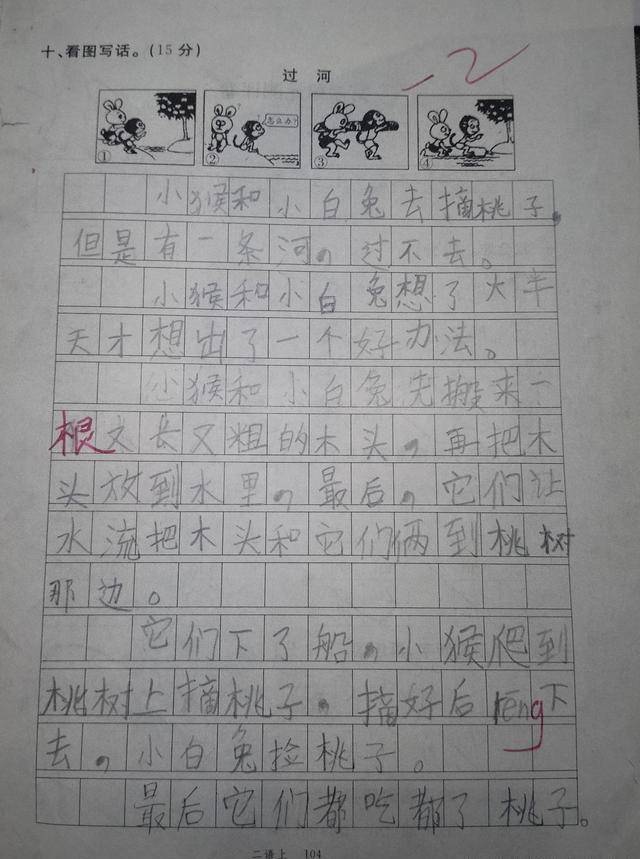 十、看图写话。(15分)
过河
-2
怎么办?
① ② ③ ④
小猴和小白兔去摘桃子。
但是有一条河，过不去。
小猴和小白兔想了大半
天才想出了一个好办法。
小猴和小白兔先搬来一
根又长又粗的木头，再把木
头放到水里，最后，它们让
水流把木头和它们俩到桃树
那边。
它们下了船，小猴爬到
桃树上摘桃子。摘好后rēng下
去，小白兔捡桃子。
最后它们都吃都了桃子。
二语上 104